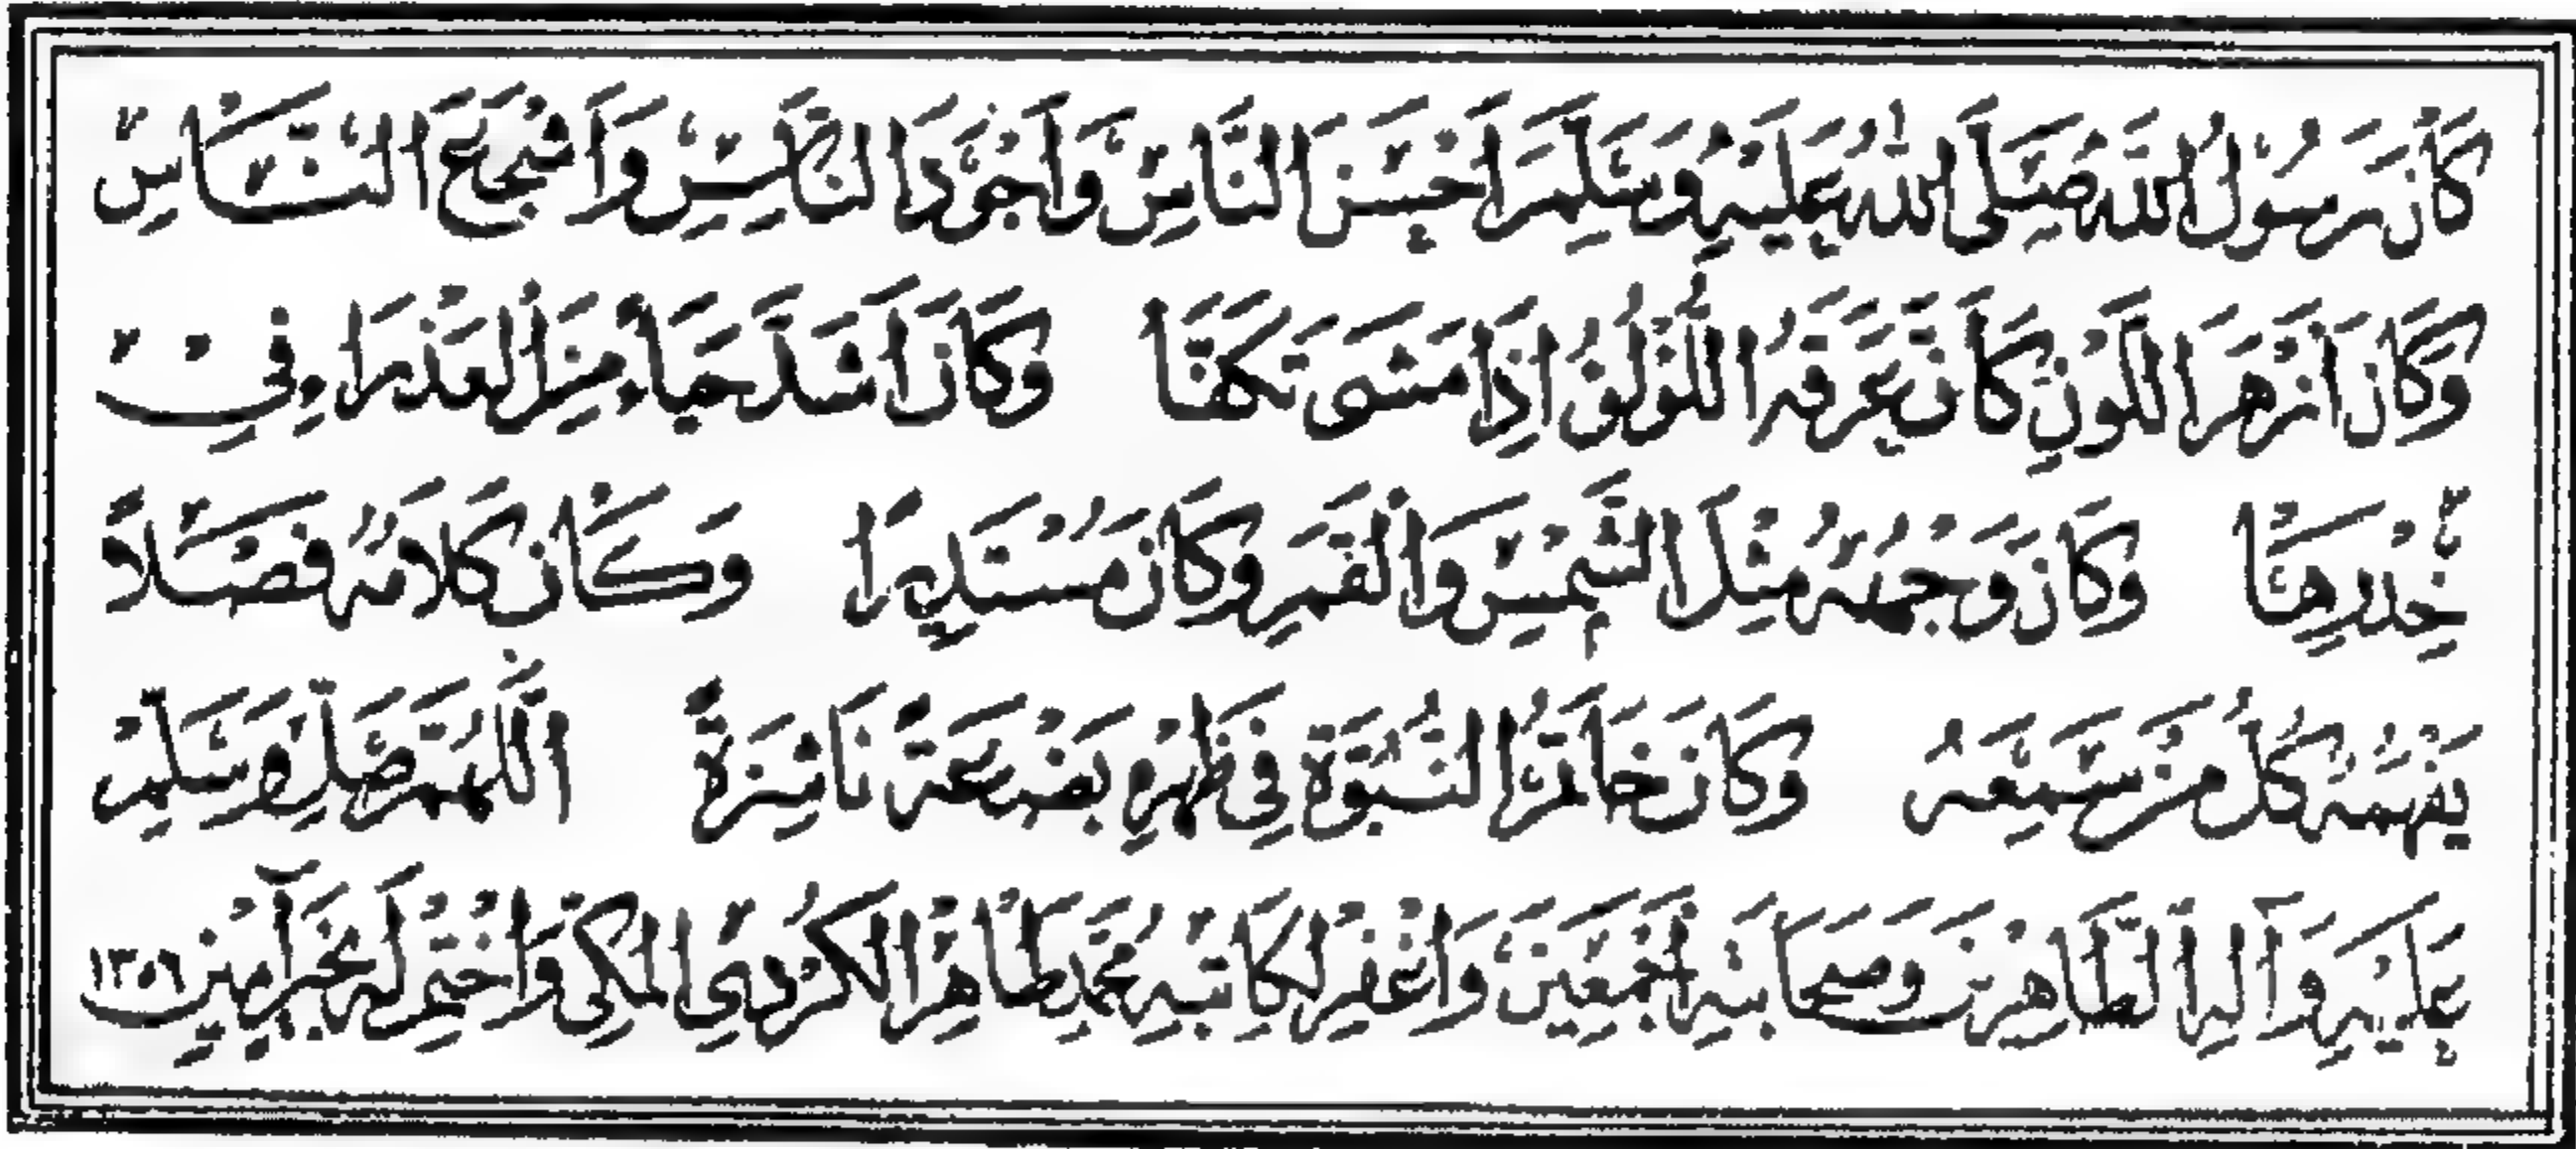 كَانَ رَسُوْلُ اللّٰهِ صَلَّى اللّٰهُ عَلَيْهِ وَسَلَّمَ اَحْسَنَ النَّاسِ وَاَجْوَدَ النَّاسِ وَاَشْجَعَ النَّاسِ
وَكَانَ اَزْهَرَ اللَّوْنِ كَاَنَّ عَرَقَهُ اللُّؤْلُؤُ اِذَا مَشَى تَكَفَّأَ وَكَانَ اَشَدَّ حَيَاءً مِنَ الْعَذْرَاءِ فِيْ
خِدْرِهَا وَكَانَ وَجْهُهُ مِثْلَ الشَّمْسِ وَالْقَمَرِ وَكَانَ مُسْتَدِيْرًا وَكَانَ كَلَامُهُ فَصْلًا
يَفْهَمُهُ كُلُّ مَنْ سَمِعَهُ وَكَانَ خَاتَمُ النُّبُوَّةِ فِي ظَهْرِهِ بَضْعَةً نَاشِزَةً اَللّٰهُمَّ صَلِّ وَسَلِّمْ
عَلَيْهِ وَآلِهِ الطَّاهِرِيْنَ وَصَحَابَتِهِ أَجْمَعِيْنَ وَاغْفِرْ لِكَاتِبِهِ مُحَمَّد طَاهِر الْكُرْدِيِّ الْمَكِّيِّ وَاخْتِمْ لَهُ بِخَيْرٍ آمِيْن ١٣٥٦